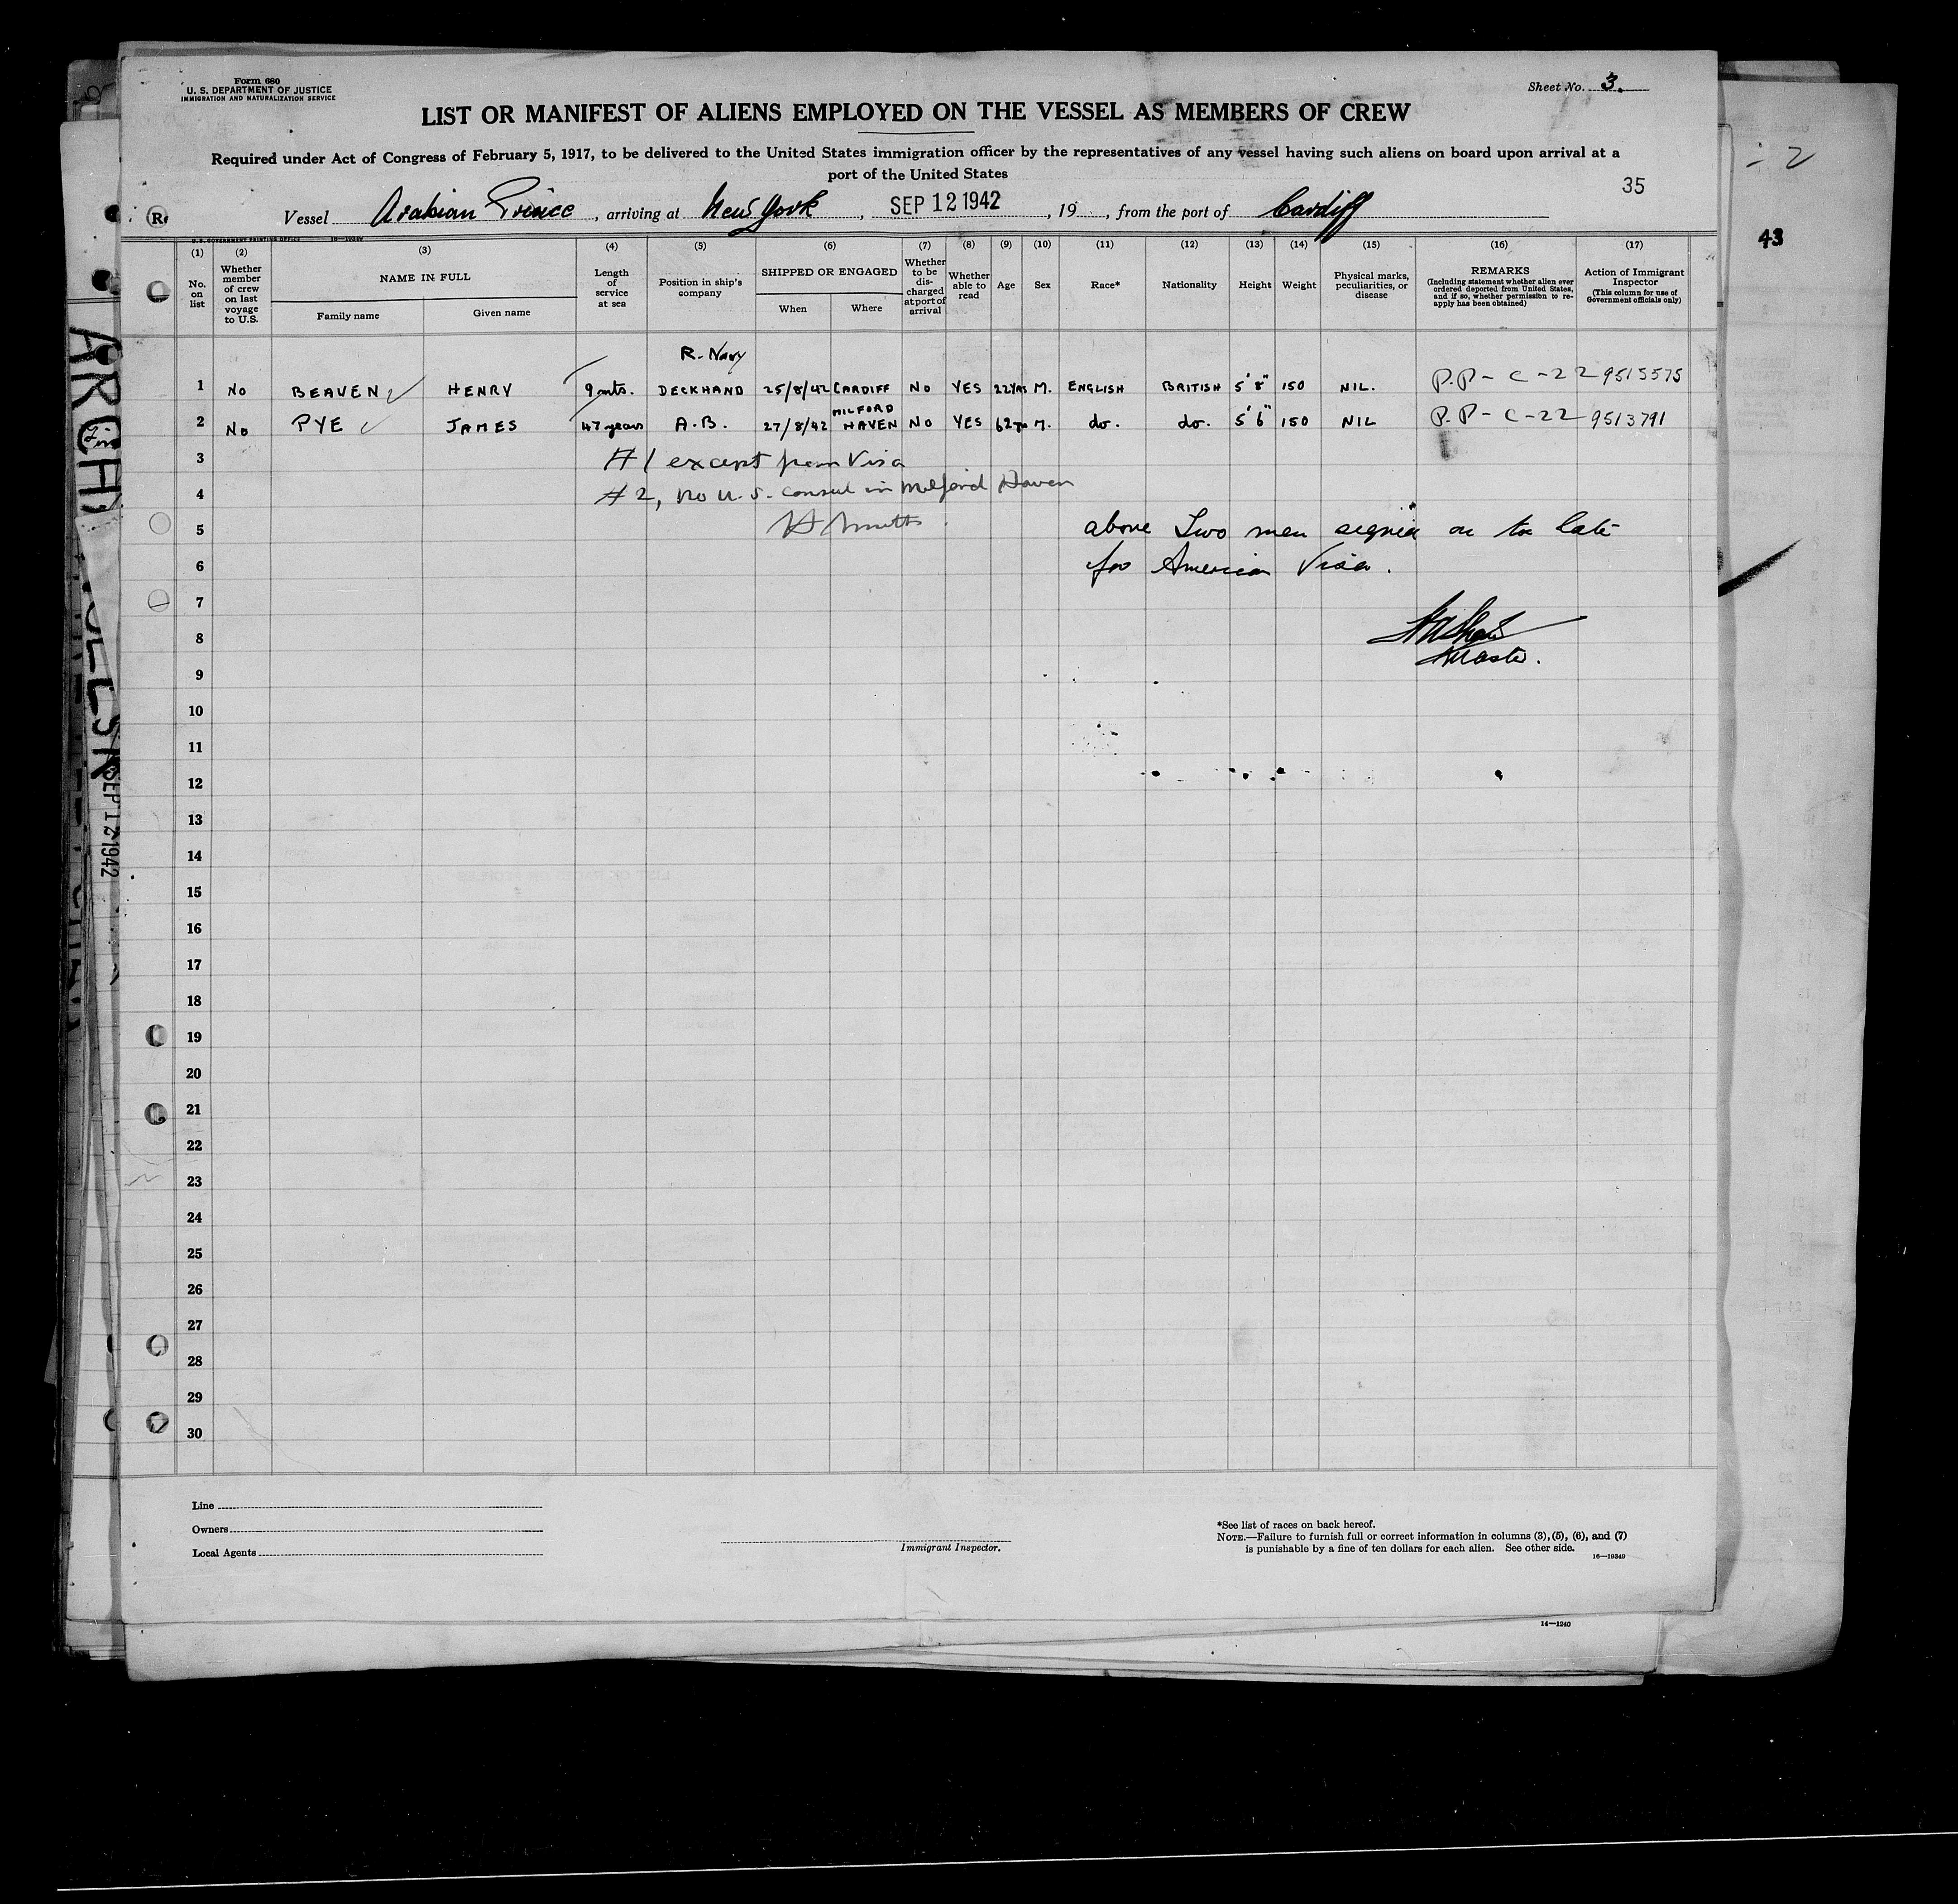 Form 680
U. S. DEPARTMENT OF JUSTICE
IMMIGRATION AND NATURALIZATION SERVICE
Sheet No. 3.
LIST OR MANIFEST OF ALIENS EMPLOYED ON THE VESSEL AS MEMBERS OF CREW
Required under Act of Congress of February 5, 1917, to be delivered to the United States immigration officer by the representatives of any vessel having such aliens on board upon arrival at a
port of the United States
35
Vessel Arabian Prince, arriving at New York, SEP 12 1942, 19, from the port of Cardiff
43
U.S. GOVERNMENT PRINTING OFFICE 16—19349
(1) (2) (3) (4) (5) (6) (7) (8) (9) (10) (11) (12) (13) (14) (15) (16) (17)
No. on list
Whether member of crew on last voyage to U.S.
NAME IN FULL
Family name
Given name
Length of service at sea
Position in ship's company
SHIPPED OR ENGAGED
When
Where
Whether to be discharged at port of arrival
Whether able to read
Age
Sex
Race*
Nationality
Height
Weight
Physical marks, peculiarities, or disease
REMARKS
(Including statement whether alien ever ordered deported from United States, and if so, whether permission to re-apply has been obtained)
Action of Immigrant Inspector
(This column for use of Government officials only)
R. Navy
1 No BEAVEN HENRY 9 mts. DECKHAND 25/8/42 CARDIFF NO YES 22 YRS M. ENGLISH BRITISH 5' 8" 150 NIL. P.P - C - 22 9515575
2 No PYE JAMES 47 years A.B. 27/8/42 MILFORD HAVEN NO YES 62 yrs M. do. do. 5' 6" 150 NIL P.P - C - 22 9513791
3 #1 except from Visa
4 #2, no U.S. Consul in Milford Haven
5 above Two men signed on too late
6 for American Visa.
7
8
Master.
9
10
11
12
13
14
15
16
17
18
19
20
21
22
23
24
25
26
27
28
29
30
Line
Owners
Local Agents
Immigrant Inspector.
*See list of races on back hereof.
NOTE.—Failure to furnish full or correct information in columns (3), (5), (6), and (7)
is punishable by a fine of ten dollars for each alien. See other side.
16—19349
14—1240
SEP 12 1942